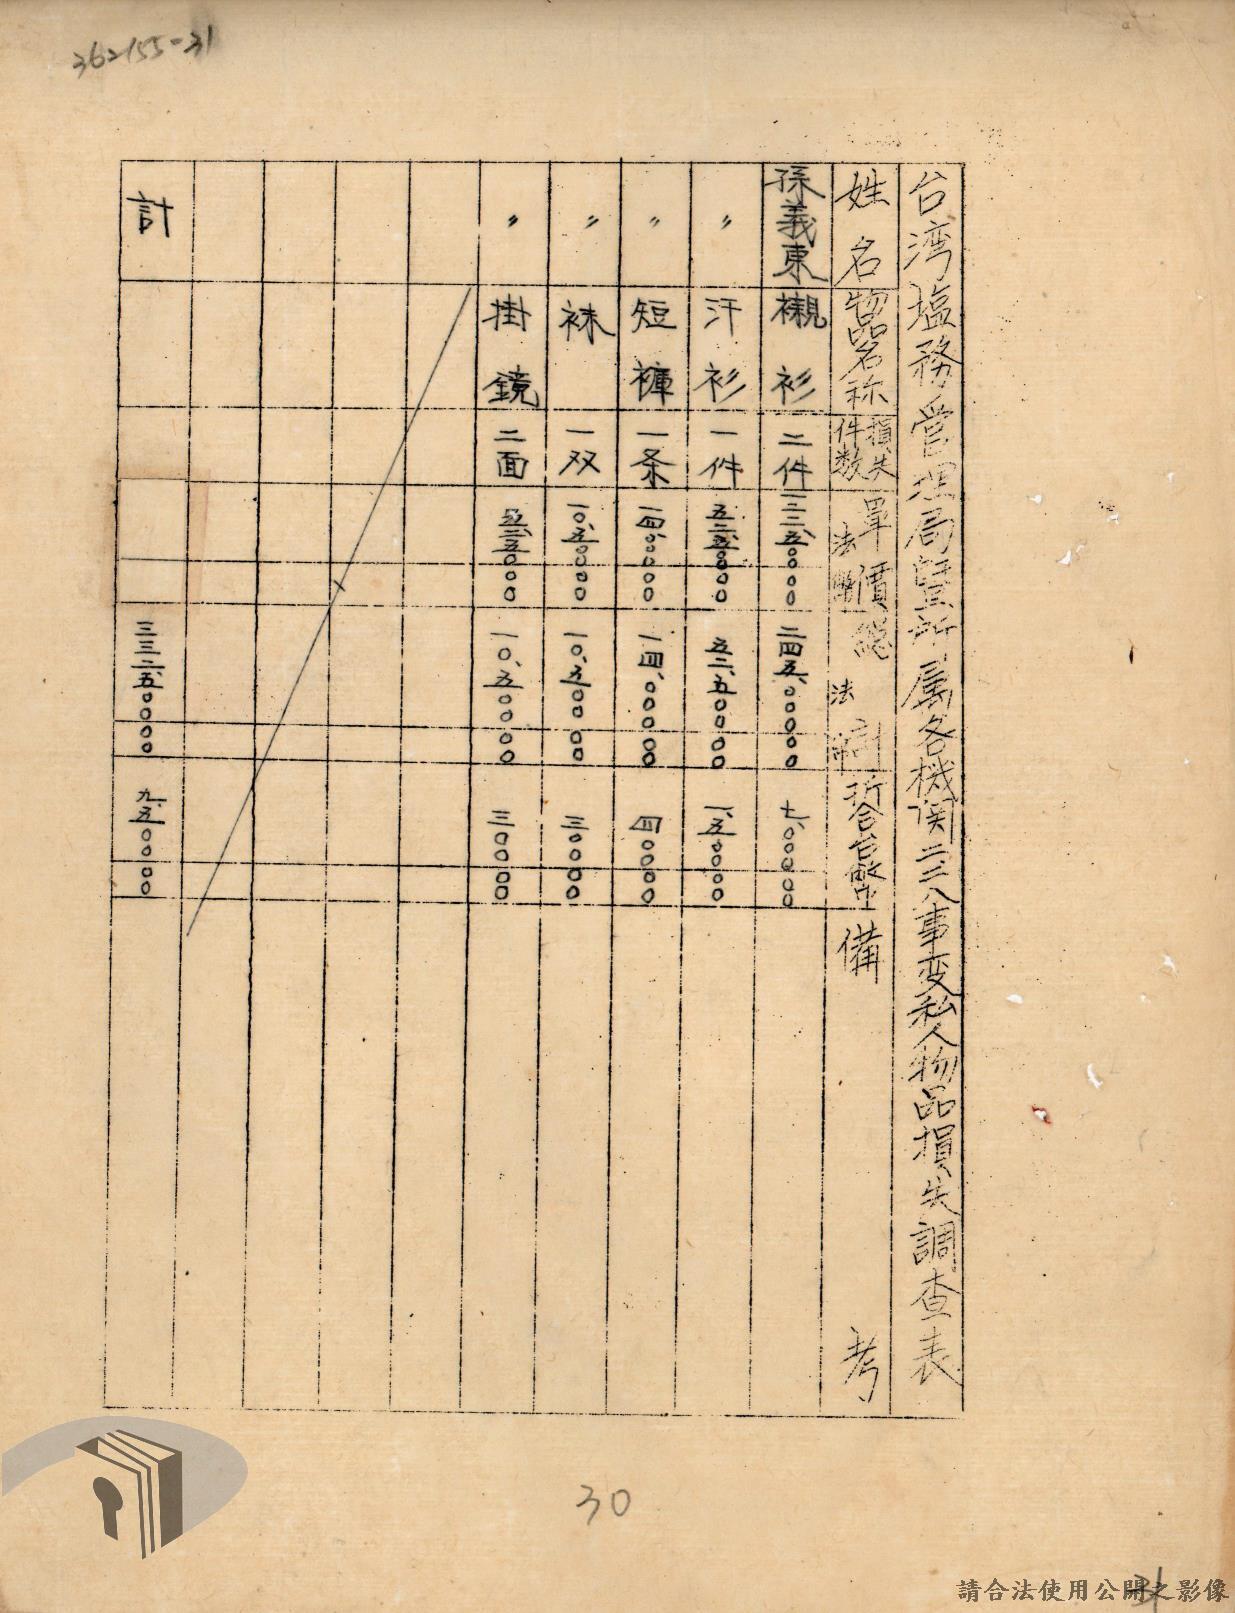 362155-31
台湾塩務管理局暨所属各機関二二八事変私人物品損失調查表
姓名 物品名称 損失件数 單價 法幣 総計 法幣 折合台幣 備考
孫義東 襯衫 二件 一二二、五〇〇〇〇 二四五、〇〇〇〇〇 七、〇〇〇〇〇
〃 汗衫 一件 五二、五〇〇〇〇 五二、五〇〇〇〇 一、五〇〇〇〇
〃 短褲 一条 一四、〇〇〇〇〇 一四、〇〇〇〇〇 四〇〇〇〇
〃 袜 一双 一〇、五〇〇〇〇 一〇、五〇〇〇〇 三〇〇〇〇
〃 掛鏡 二面 五、二五〇〇〇 一〇、五〇〇〇〇 三〇〇〇〇
計 三三二、五〇〇〇〇 九、五〇〇〇〇
30
31
請合法使用公開之影像